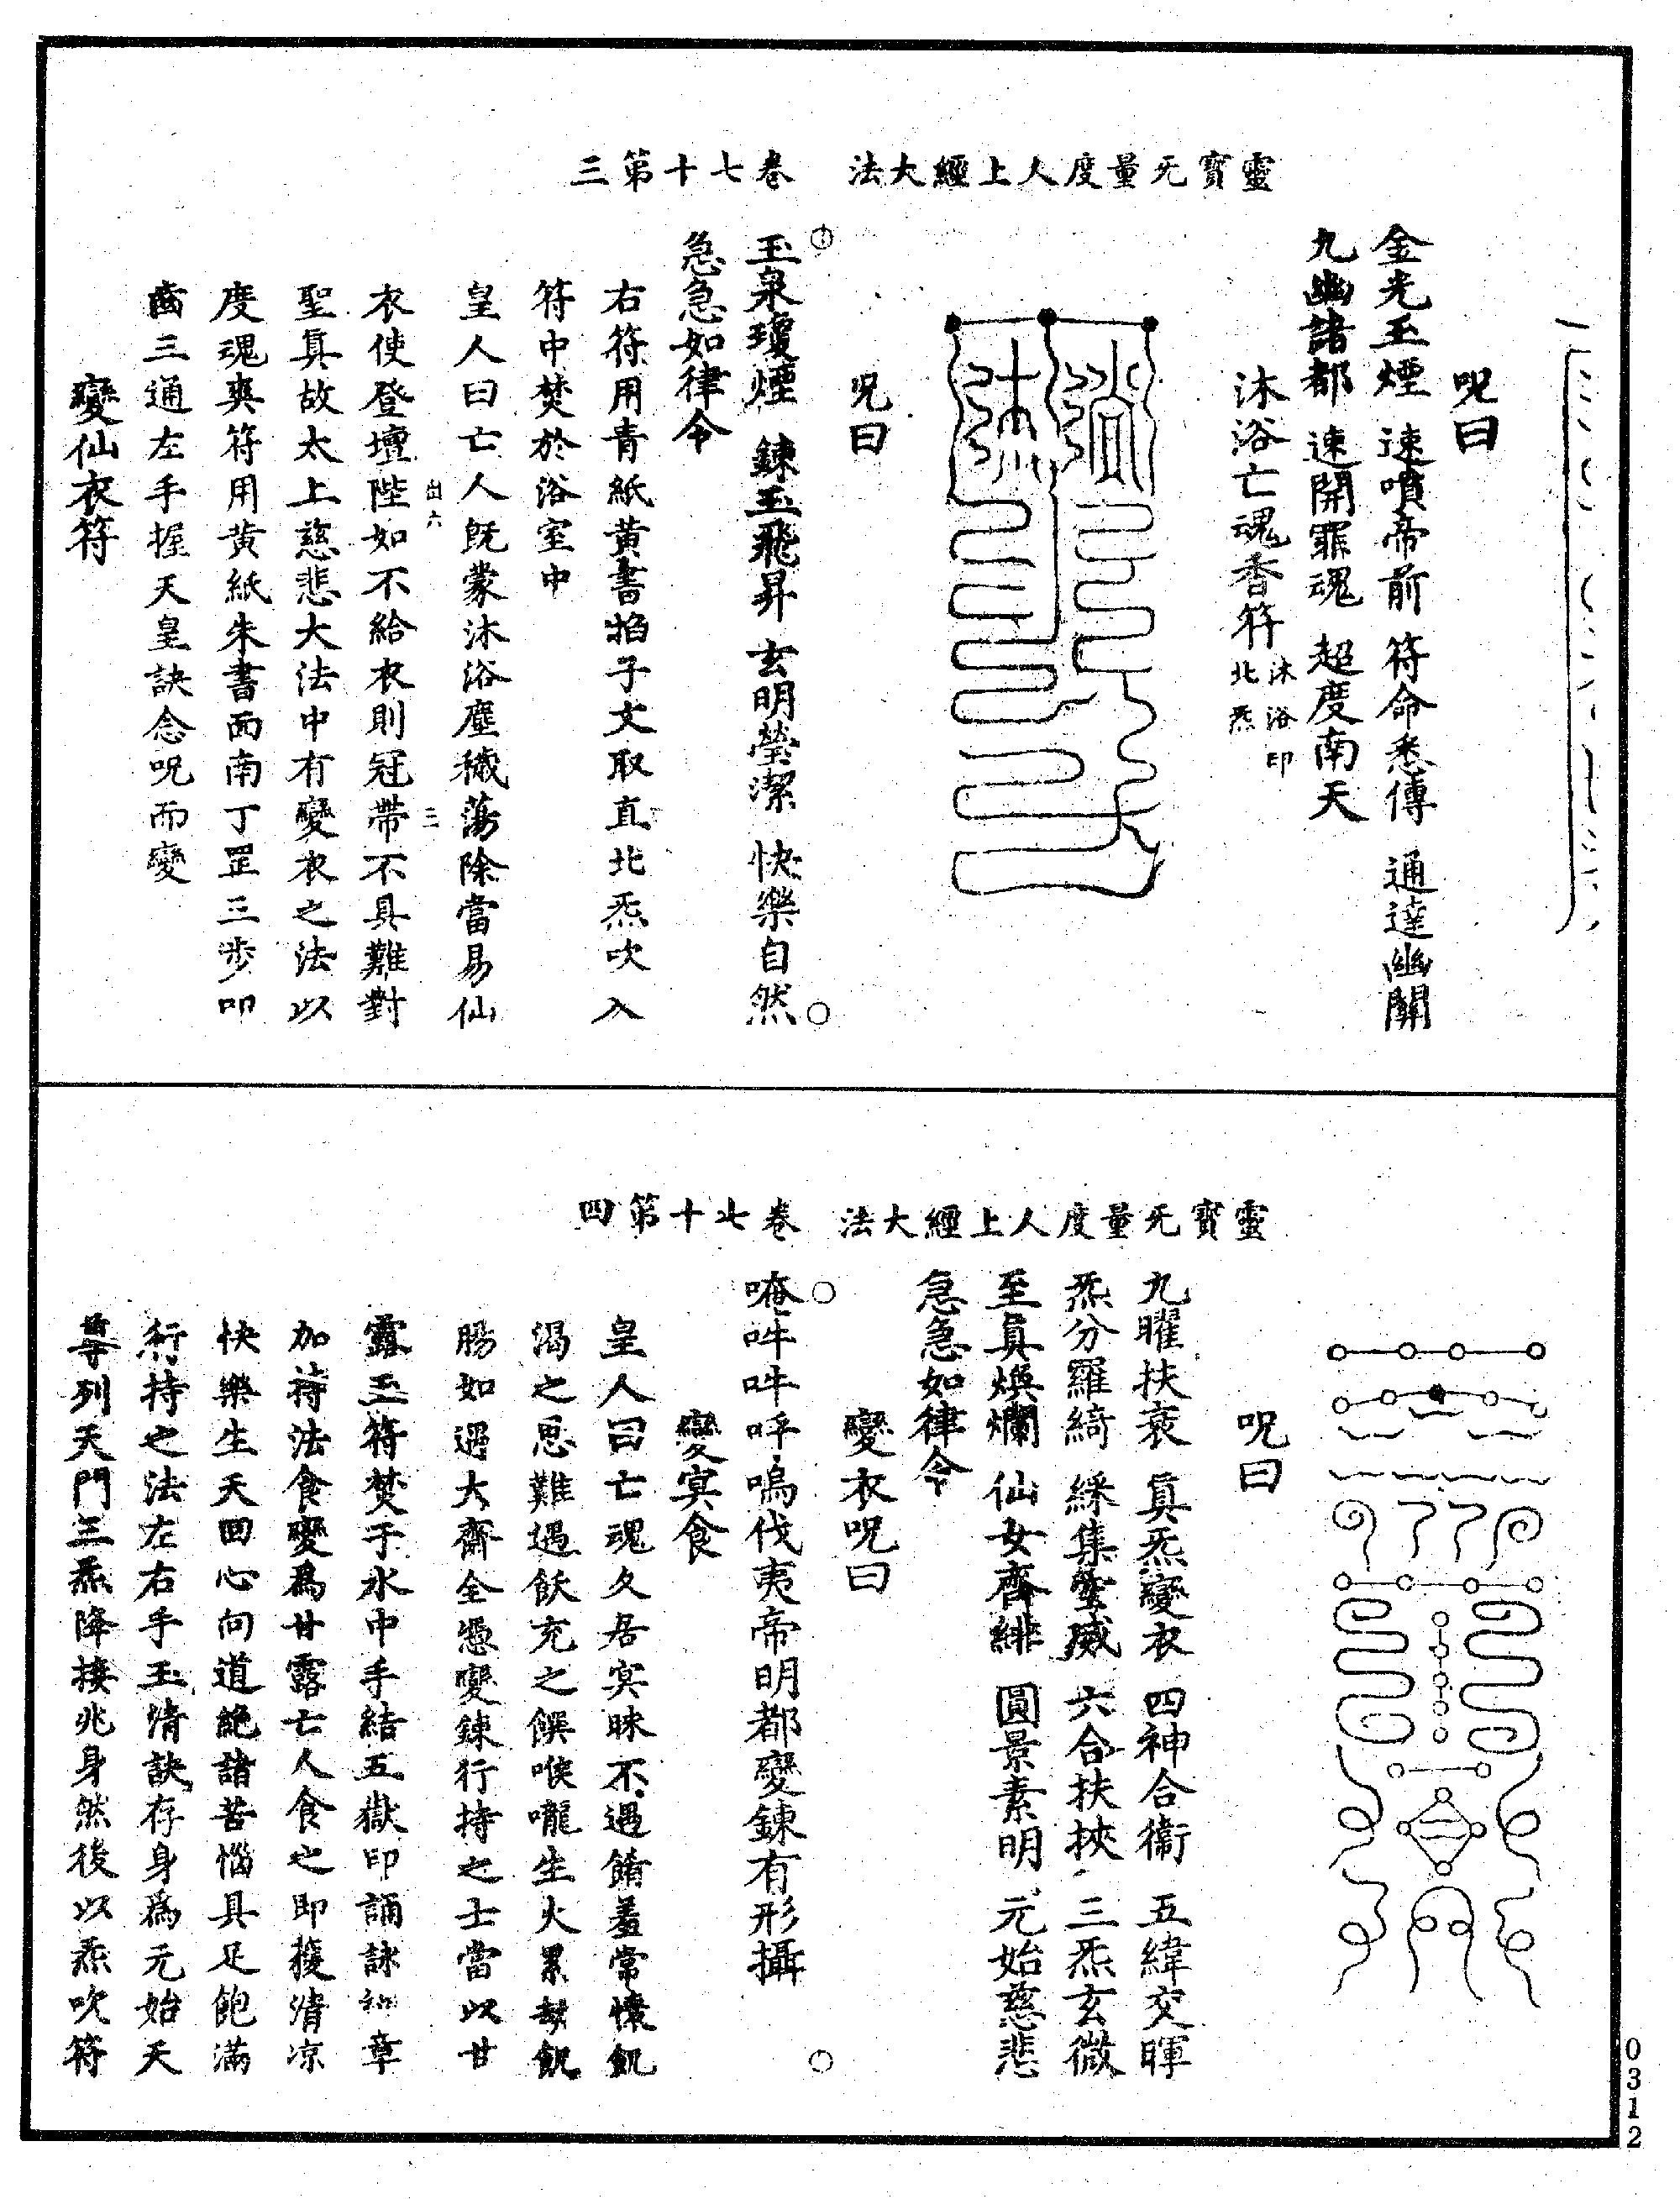 靈寶无量度人上經大法 卷七十第三
呪曰
金光玉煙 速噴帝前 符命悉傳 通達幽關
九幽諸都 速開罪魂 超度南天
沐浴亡魂香符 沐浴印 北炁
呪曰
玉泉瓊煙 鍊玉飛昇 玄明瑩潔 快樂自然
急急如律令
右符用青紙黃書掐子文取直北炁吹入
符中焚於浴室中
皇人曰亡人既蒙沐浴塵穢蕩除當易仙
出六 三
衣使登壇陛如不給衣則冠帶不具難對
聖眞故太上慈悲大法中有變衣之法以
度魂爽符用黃紙朱書面南丁罡三步叩
齒三通左手握天皇訣念呪而變
變仙衣符
靈寶无量度人上經大法 卷七十第四
呪曰
九曜扶衰 眞炁變衣 四神合衞 五緯交暉
炁分羅綺 綵集靈威 六合扶挾 三炁玄微
至眞煥爛 仙女齊緋 圓景素明 元始慈悲
急急如律令
變衣呪曰
唵吽吽呼嗚伐夷帝明都變鍊有形攝
變寞食
皇人曰亡魂久居寞昧不遇餚羞常懷飢
渴之思難遇飫充之饌喉嚨生火累劫飢
腸如遇大齋全憑變鍊行持之士當以甘
露玉符焚于水中手結五獄印誦詠 章
加持法食變爲甘露亡人食之即獲清凉
快樂生天回心向道絶諸苦惱具足飽滿
行持之法左右手玉清訣存身爲元始天
尊列天門三炁降接兆身然後以炁吹符
0312